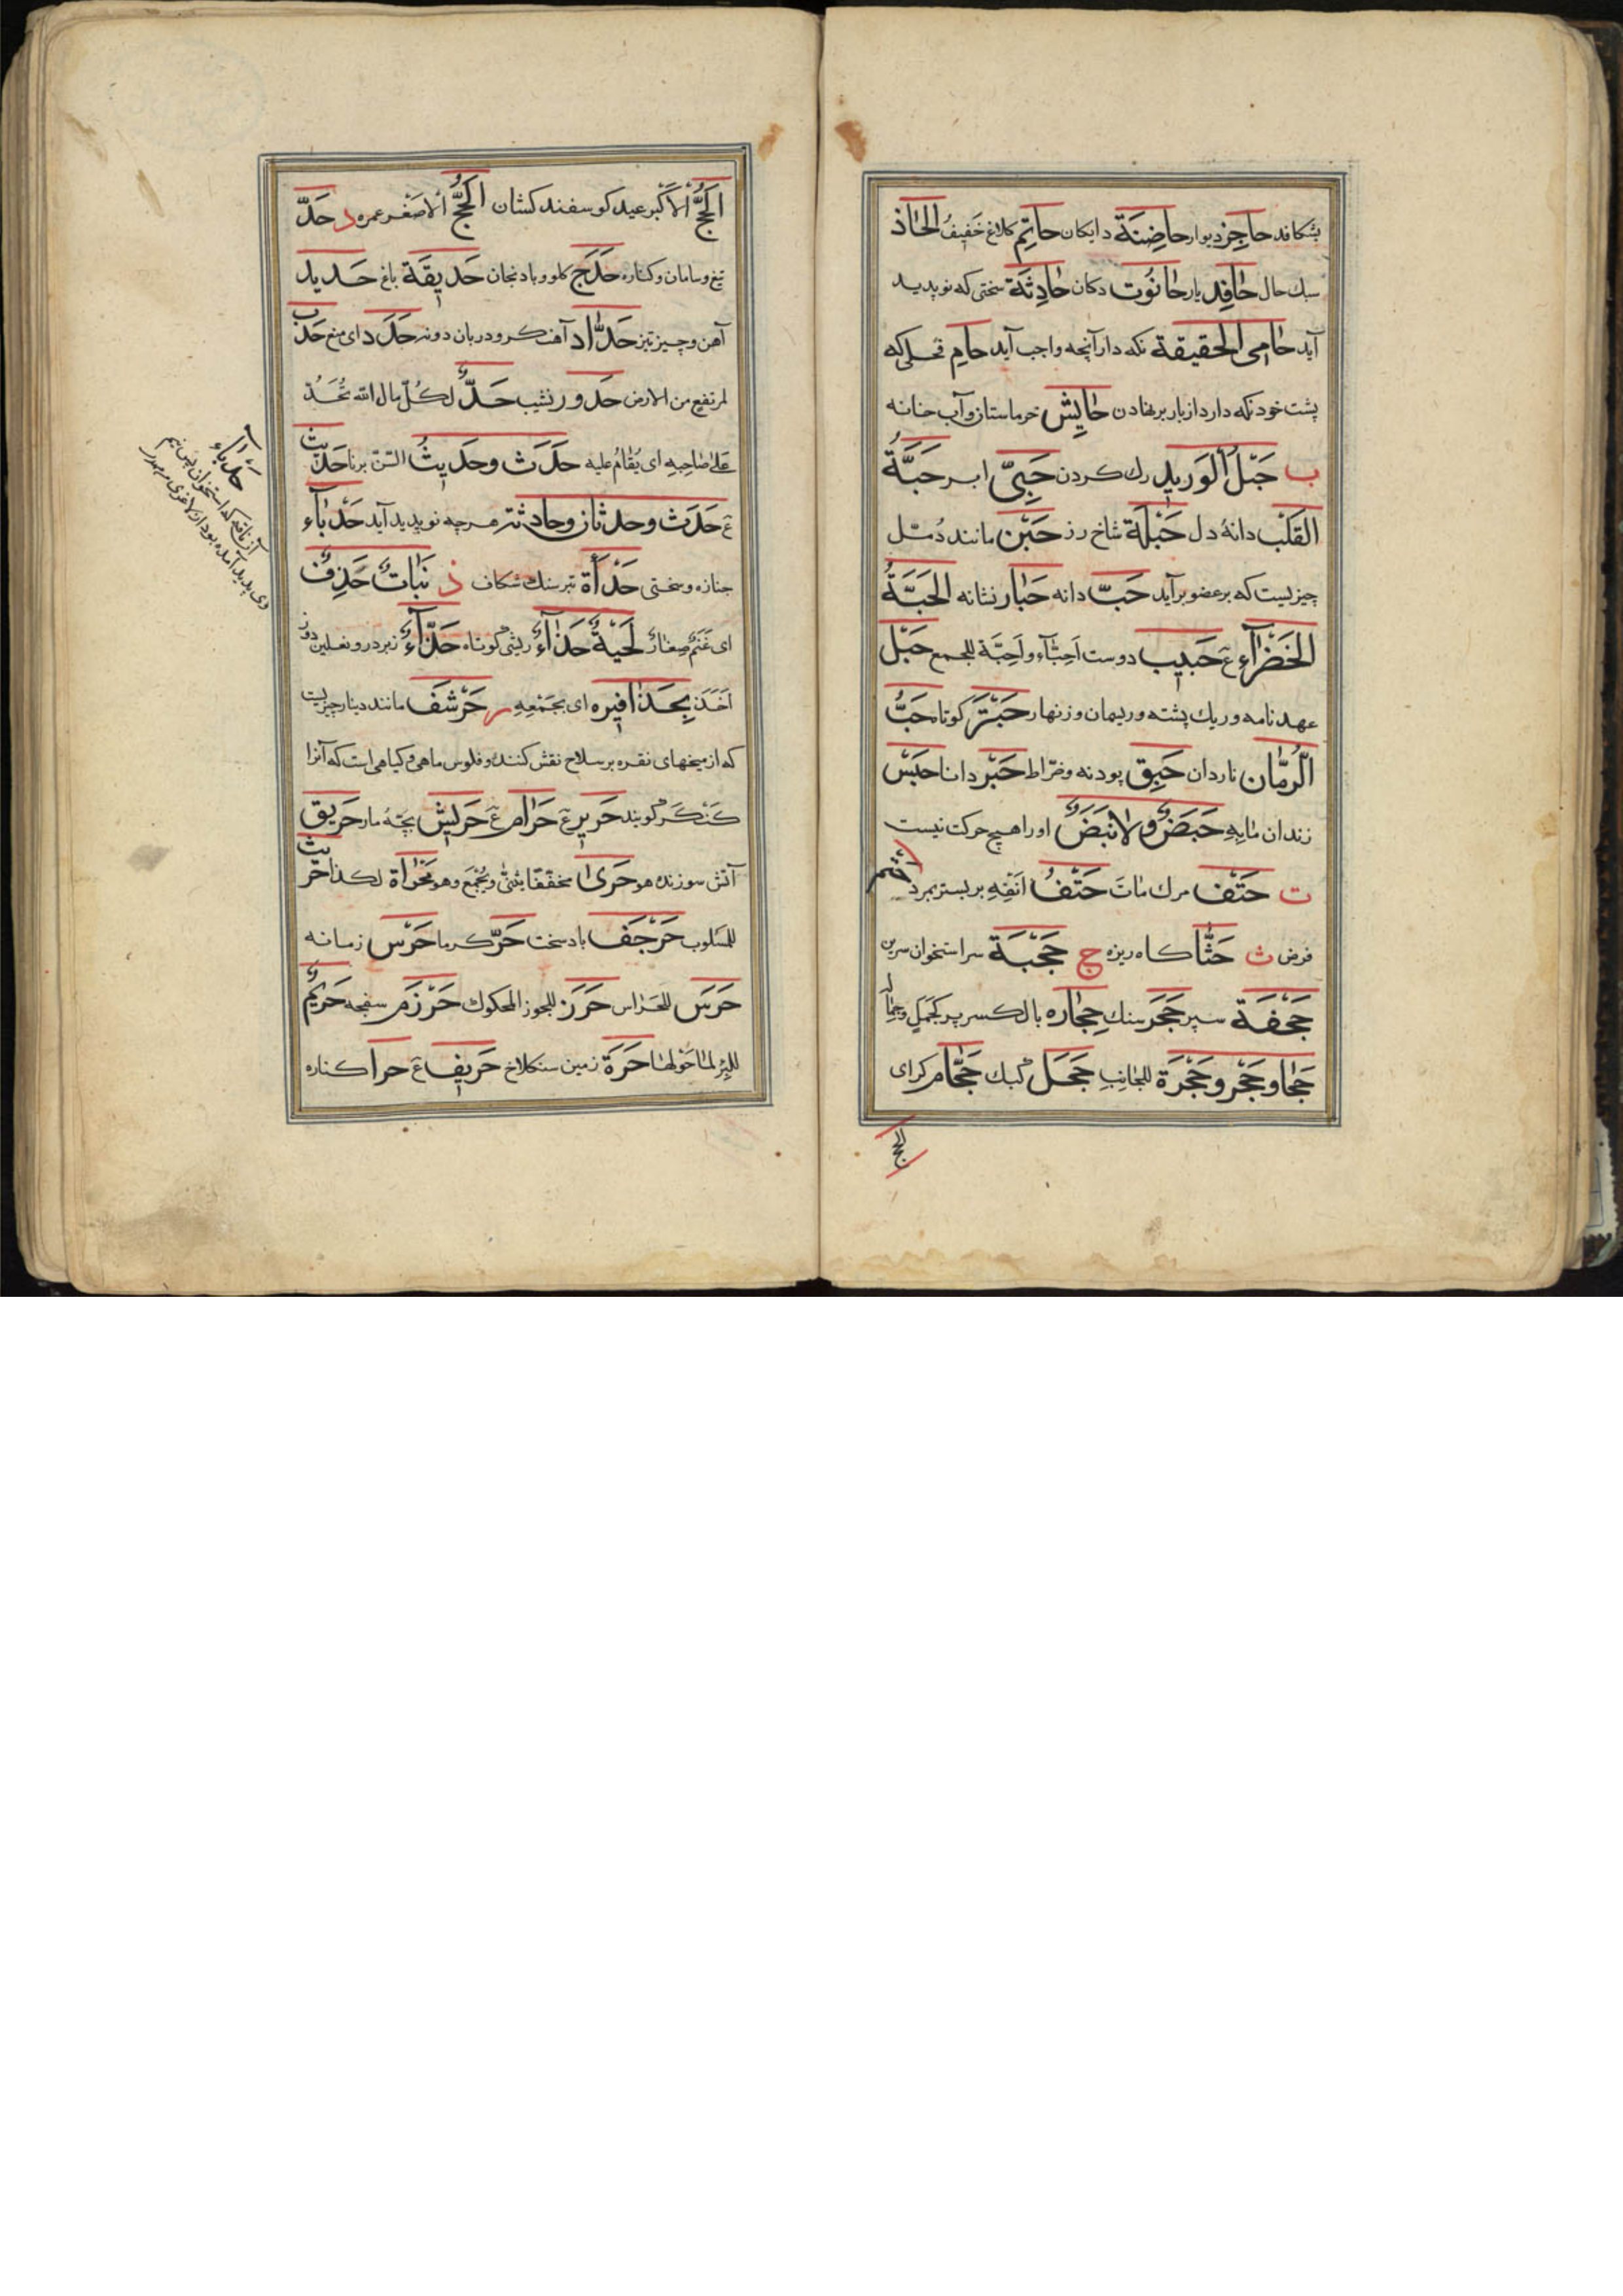 بشکافد حاجِز دیوار حاضِنَة دایکان حاتِم کلاغ خَفیفُ الحَاذ
سبك حال حَافِد یار حَانُوت دکان حَادِثَة سختی که نو پدید
آید حَامِی الحقیقة نکه دار آنچه واجب آید حامِ فحلی که
پشت خود نکه دارد از بار برنهادن حَایِش خرماستان و آب خانه
ب حَبْلُ الوَرید رك کردن حَبِیّ ابر حَبَّةُ
القَلْب دانهٔ دل حَبْلَة شاخ رز حَبْن مانند دُمّل
چیزیست که بر عضو برآید حَبّ دانه حَبَار نشانه الحَبَّةُ
الخَضْرَآءِ ع حَبیب دوست اَحِبَّآء و اَحِبَّة للجمع حَبْل
عهدنامه و ریك پشته و ریمان و زنهار حَبْتَر کوتاه حَبُّ
الرُّمَّان ناردان حَبِق پودنه و ضراط حَبْر دانا حَبْس
زندان مَا بِهِ حَبَضٌ وَلَا نَبَضٌ او را هیچ حرکت نیست
ت حَتْف مرك مَاتَ حَتْفُ اَنْفِهِ بر بستر بمرد حتم
فرض ث حَثَا کاه ریزه ج حَجْبَة سر استخوان سرین
حَجَفَة سپر حَجَر سنك حِجَاره بالکسر پر کجَمَلٍ وجِمَال
حَجَا و حَجْر و حَجْرَة للجانِب حَجَل کبك حَجَّام کرای
الحج
الحَجُّ الْاَکْبَر عید کوسفند کشان الحَجُّ الْاصْغَر عمره د حَدّ
تیغ و سامان و کناره حَدَج کلو و بادنجان حَدیقَة باغ حَدید
آهن و چیز تیز حَدَّاد آهنکر و دربان دونه حَدَد ای منع حَدَب
لمرتفع من الارض حَدور نشیب حَدٌّ لکُلّ مال الله تُحَدّ
عَلی صَاحِبِهِ ای یُقامُ علیه حَدَث وحَدیثُ السّن برنا حَدیث
ع حَدَث وحدثان وحادثة هر چه نو پدید آید حَدْبَاء
جنازه و سختی حَدْأَة تبر سنك شکاف ذ نَبَاتٌ حَذِفٌ
ای غَنَمٌ صِغَارٌ لَحیةٌ حَذَّآءُ ریش کوتاه حَذَّآءُ زبردر و نعلین دوز
اَخَذَ بِحَذافیرِه ای بجَمْعِهِ ر حَرْشَف مانند دینار چیزیست
که از میخهای نقره بر سلاح نقش کنند و فلوس ماهی و کیاهی است که آنرا
کَنْکَر کویند حَریر ع حَرَام ع حَریش بچّهٔ مار حَریق
آتش سوزنده هو حَرًی مخفّفا یثنّی ویُجْمَع وهو مَحْرَاة لکذا حَریث
للمَسْلوب حَرْجَف باد سخت حَرّ کرما حَرْس زمانه
حَرَس للحَراس حَرَز للجوز المحکوك حَرْزَم سفجه حَریمٌ
للبِئر لمَا حَوْلها حَرَة زمین سنکلاخ حَریف ع حرا کناره
حَدْبَاء
از ناقه که استخوان پس نیم
وی پدید آمده بود از لاغری